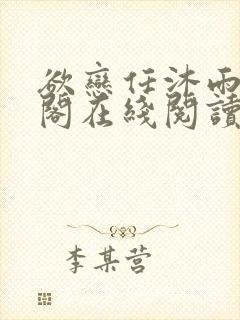 欲戀任沐雨
閣在綫閱讀
李某营